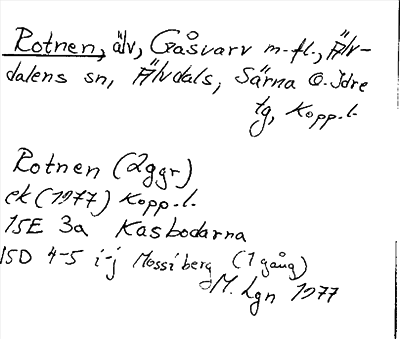 Rotnen, älv, Gåsvarv m.fl., Älv-
dalens sn, Älvdals, Särna o. Idre
tg, Kopp.l.
Rotnen (2ggr)
ek (1977) Kopp.l.
15E 3a Kasbodarna
15D 4-5 i-j Mossiberg (1 gång)
M. Lgn 1977